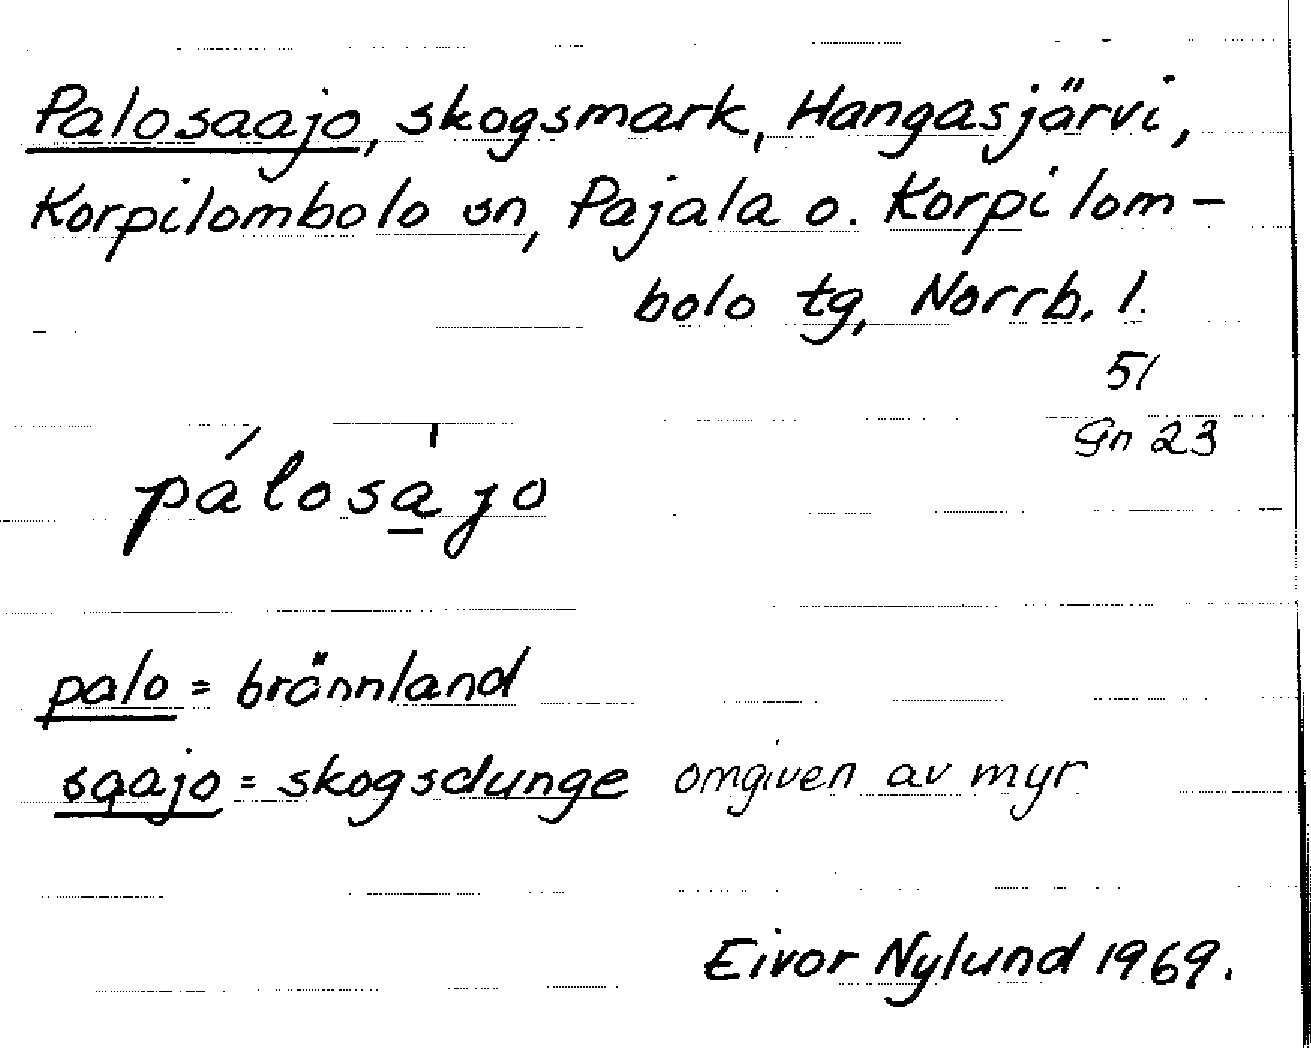 Palosaajo, skogsmark, Hangasjärvi,
Korpilombolo sn, Pajala o. Korpilom-
bolo tg, Norrb. l.
51
Gn 23
pálosa̱̍jo
palo = brännland
saajo = skogsdunge omgiven av myr
Eivor Nylund 1969.